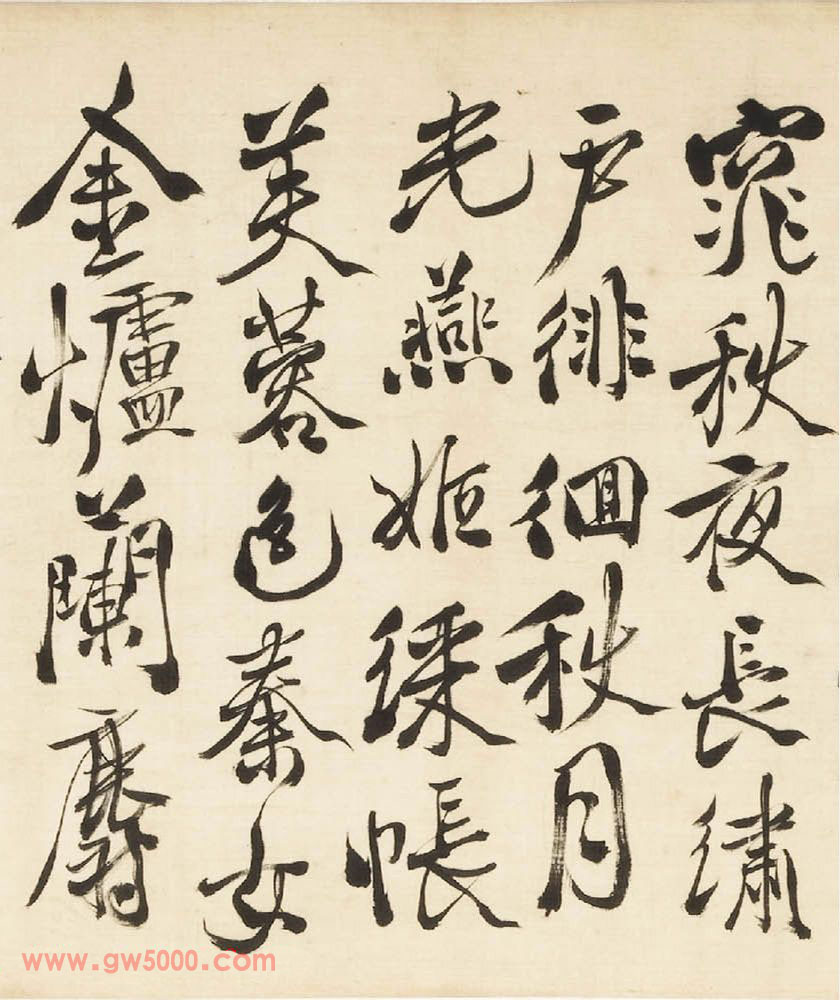 窕秋夜長繡
戶徘徊秋月
光燕姬綵帳
芙蓉色秦女
金爐蘭麝
www.gw5000.com